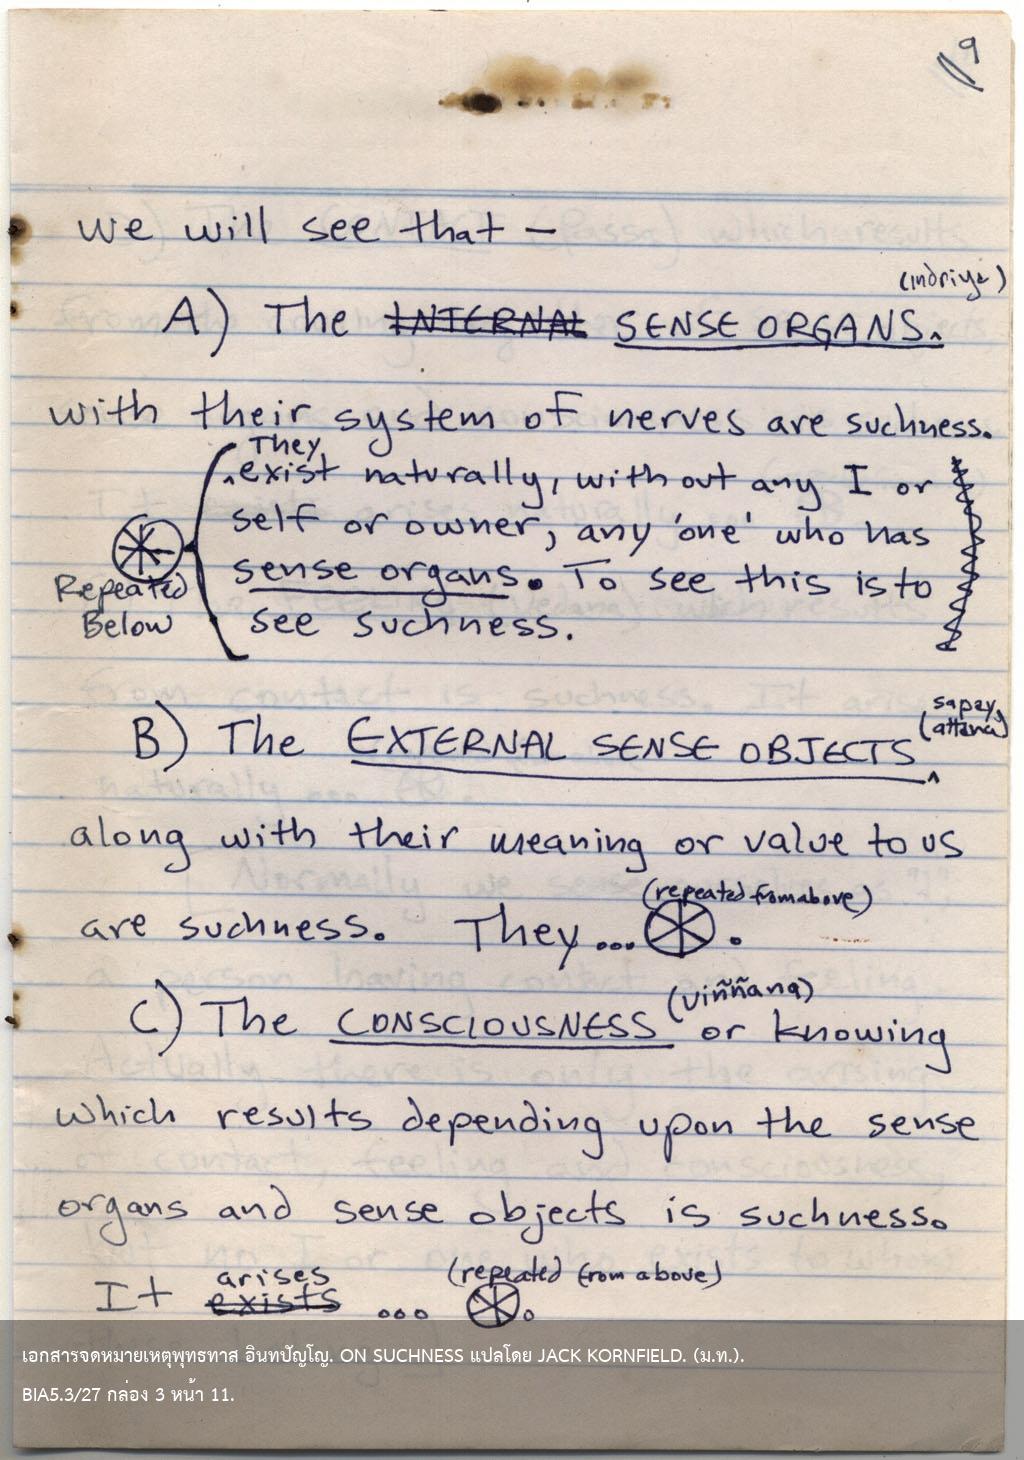 9
we will see that –
(indriya)
A) The INTERNAL SENSE ORGANS.
with their system of nerves are suchness.
They
exist naturally, without any I or
self or owner, any 'one' who has
sense organs. To see this is to
see suchness.
Repeated
Below
B) The EXTERNAL SENSE OBJECTS
along with their meaning or value to us
(repeated from above)
are suchness. They... .
(viññana)
C) The CONSCIOUSNESS or knowing
which results depending upon the sense
organs and sense objects is suchness.
arises (repeated from above)
It exists ... .
เอกสารจดหมายเหตุพุทธทาส อินทปัญโญ. ON SUCHNESS แปลโดย JACK KORNFIELD. (ม.ท.).
BIA5.3/27 กล่อง 3 หน้า 11.